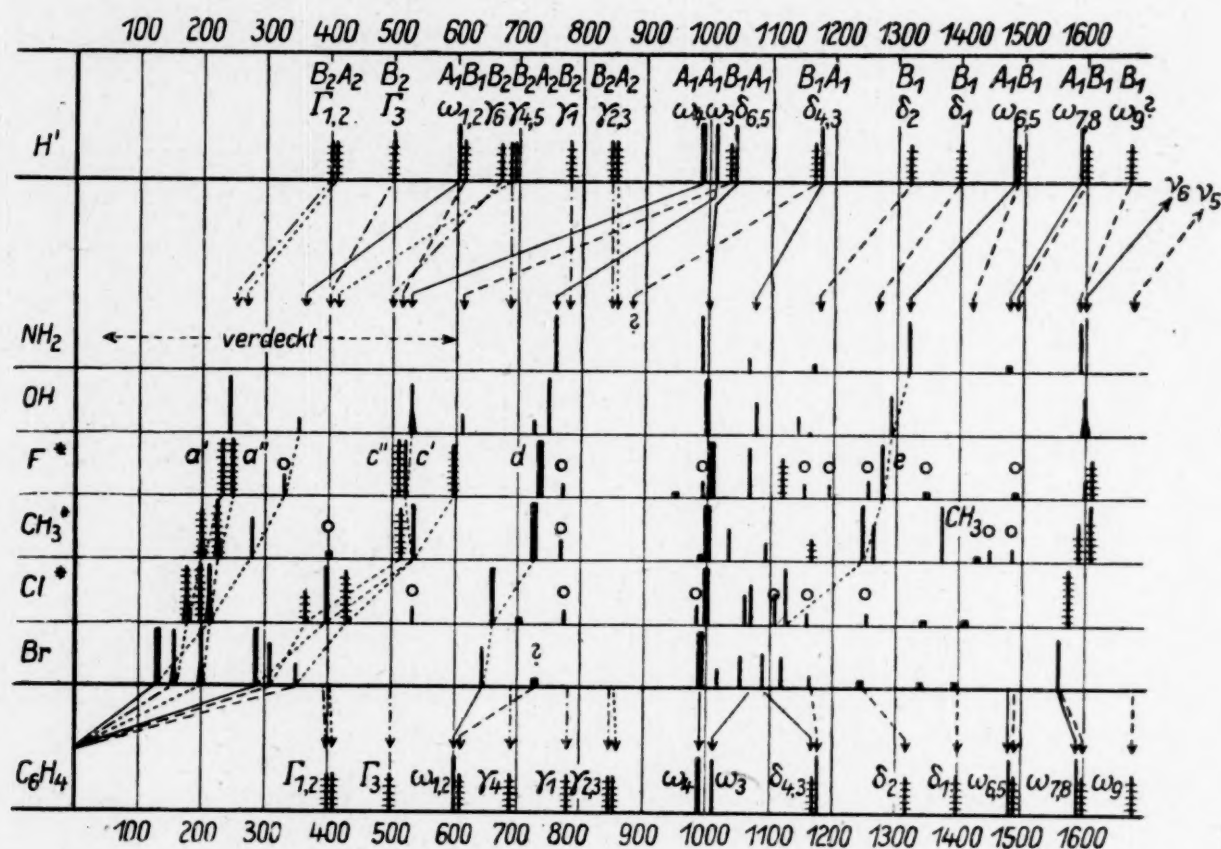 100 200 300 400 500 600 700 800 900 1000 1100 1200 1300 1400 1500 1600
B₂A₂ B₂ A₁B₁B₂B₂A₂B₂ B₂A₂ A₁A₁B₁A₁ B₁A₁ B₁ B₁ A₁B₁ A₁B₁ B₁
Γ₁,₂ Γ₃ ω₁,₂ γ₆ γ₄,₅ γ₁ γ₂,₃ ω₄ ω₃ δ₆,₅ δ₄,₃ δ₂ δ₁ ω₆,₅ ω₇,₈ ω₉?
H'
ν₆ ν₅
?
NH₂ verdeckt
OH
F* a' a" c" c' d e
CH₃* CH₃
Cl*
Br ?
C₆H₄ Γ₁,₂ Γ₃ ω₁,₂ γ₄ γ₁ γ₂,₃ ω₄ ω₃ δ₄,₃ δ₂ δ₁ ω₆,₅ ω₇,₈ ω₉
100 200 300 400 500 600 700 800 900 1000 1100 1200 1300 1400 1500 1600